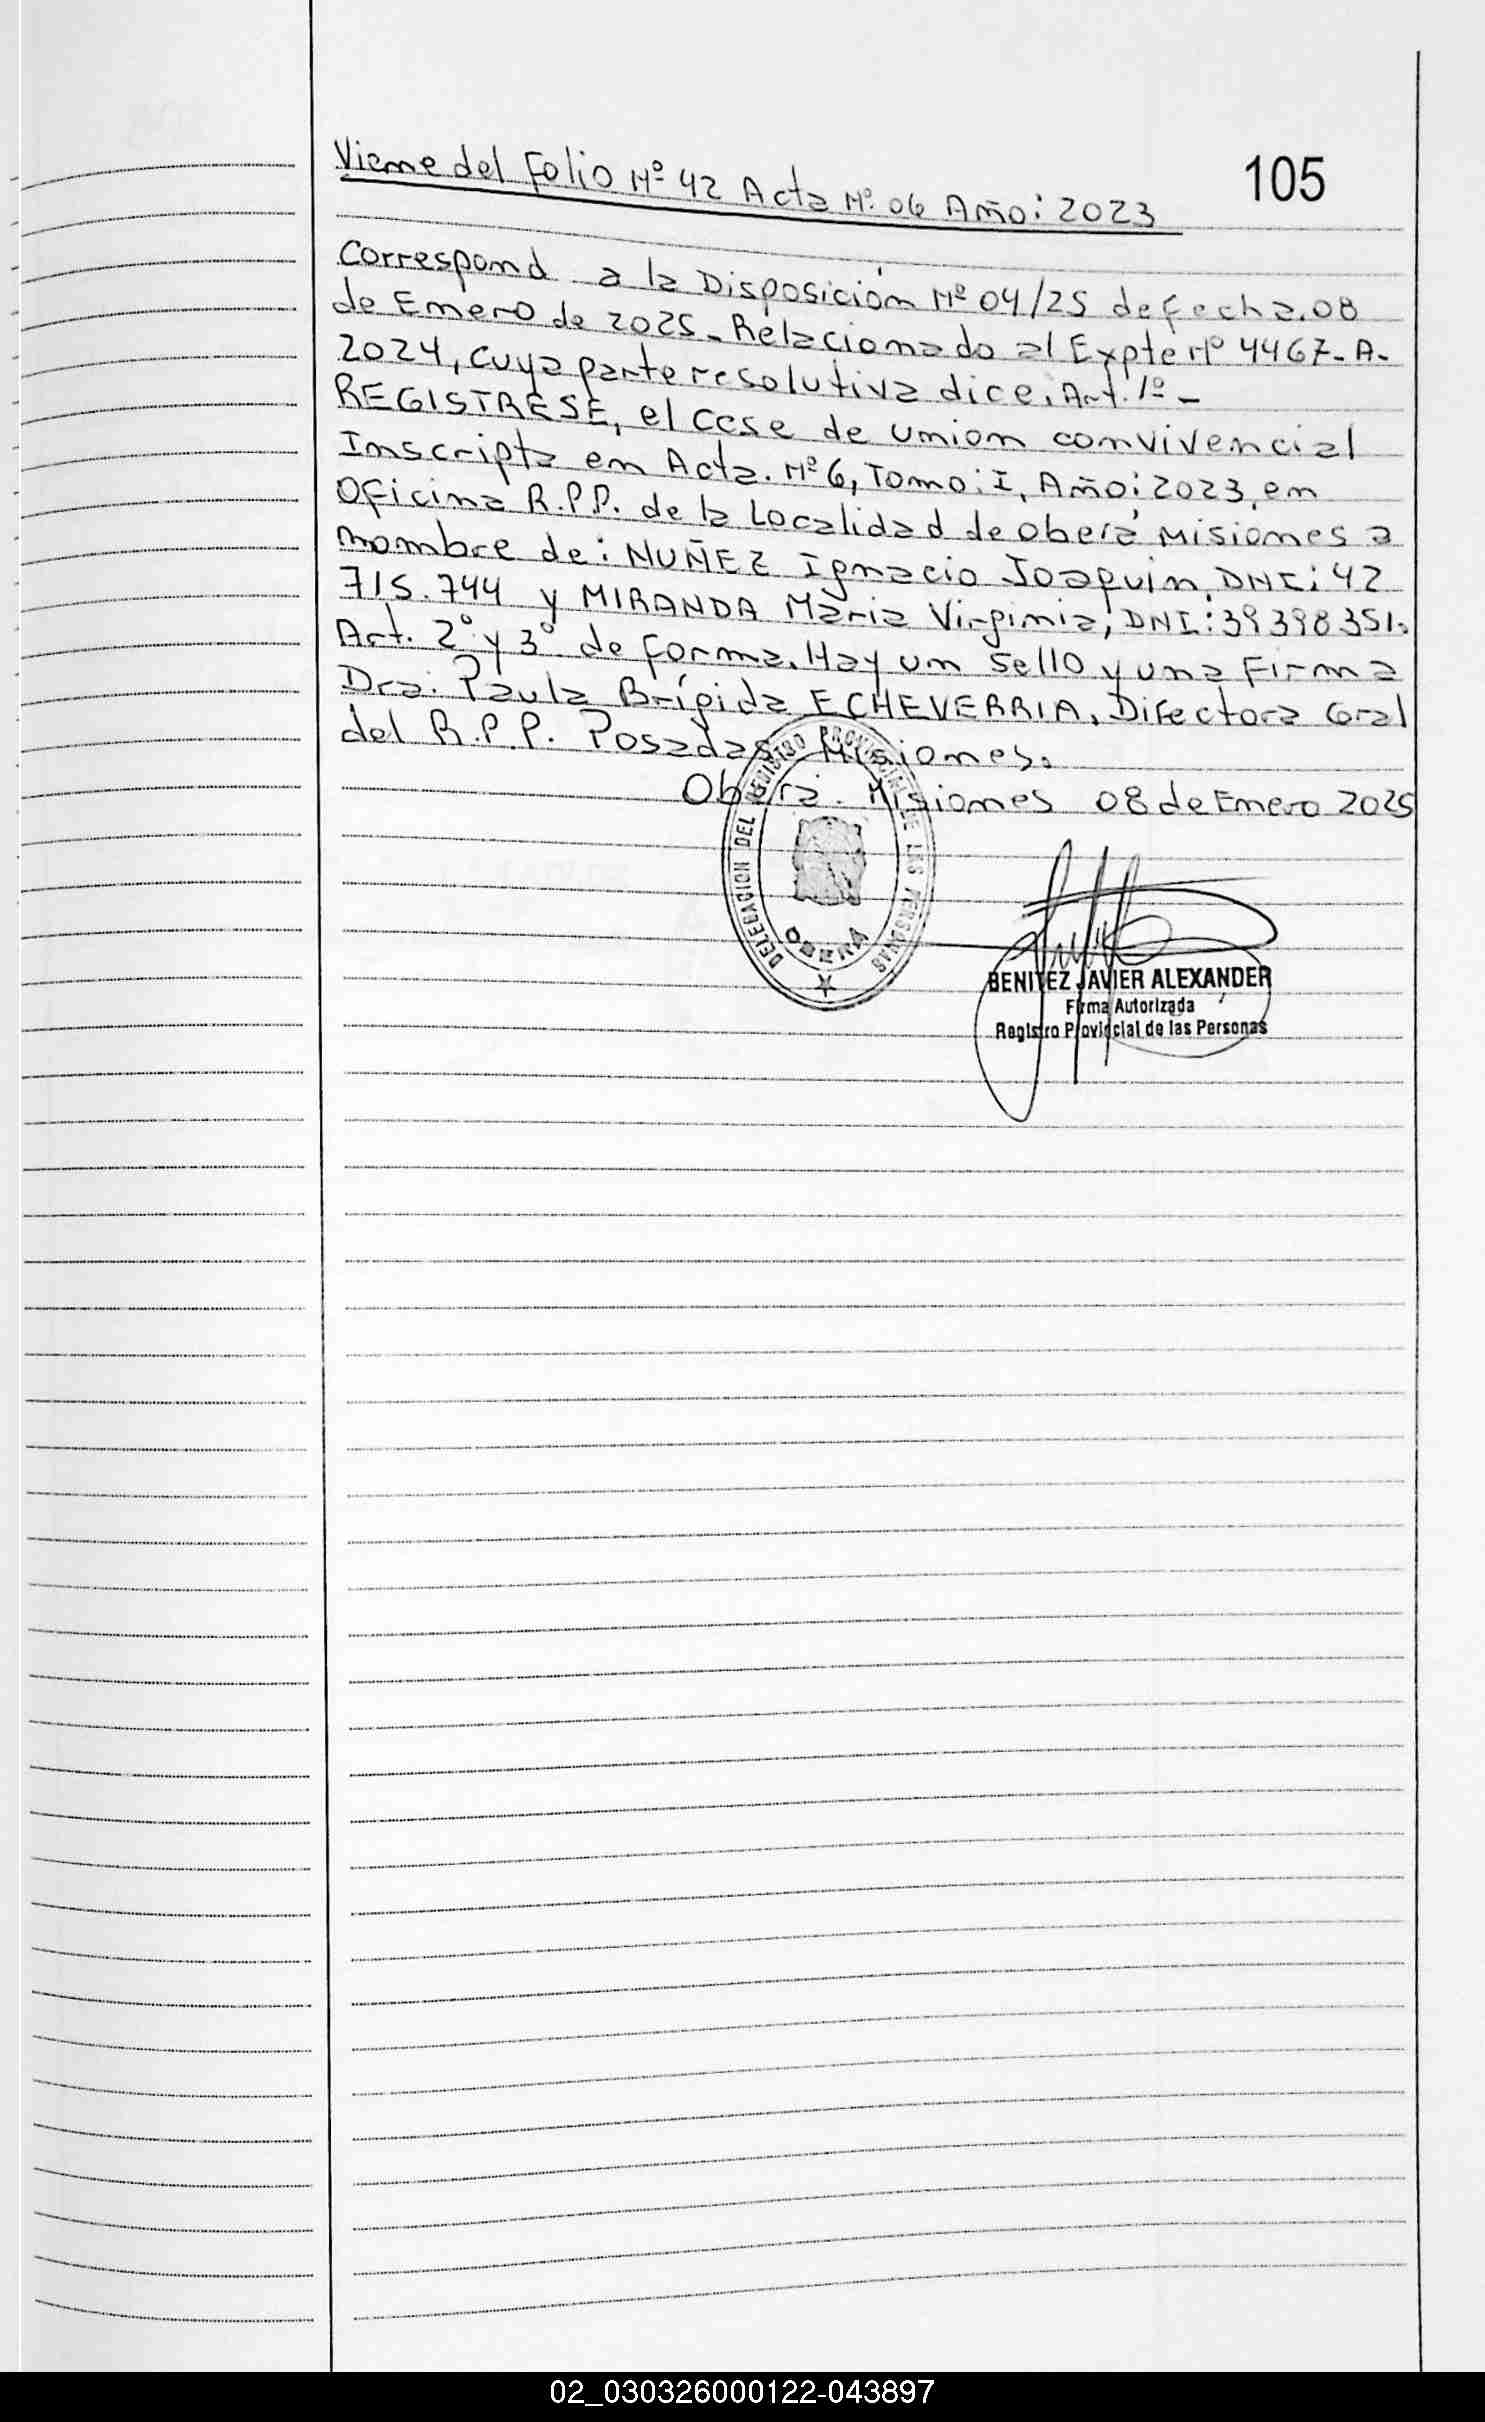 105
Viene del Folio Nº 42 Acta Nº 06 Año: 2023
Correspond a la Disposición Nº 04/25 de fecha. 08
de Enero de 2025. Relacionado al Expte Nº 4467- A-
2024, cuya parte resolutiva dice. Art. 1º -
REGISTRESE, el cese de union convivencial
Inscripta en Acta. Nº 6, Tomo: I, Año: 2023, en
Oficina R.P.P. de la Localidad de oberá, Misiones a
nombre de: NUÑEZ Ignacio Joaquin, DNI: 42
715.744 y MIRANDA Maria Virginia, DNI: 39398351.
Art. 2º y 3º de forma. Hay un sello y una Firma
Dra. Paula Brígida ECHEVERRIA, Directora Gral
del R.P.P. Posadas Misiones.
Oberá. Misiones 08 de Enero 2025
DELEGACION DEL REGISTRO PROVINCIAL DE LAS PERSONAS
OBERA
BENITEZ JAVIER ALEXANDER
Firma Autorizada
Registro Provincial de las Personas
02_030326000122-043897